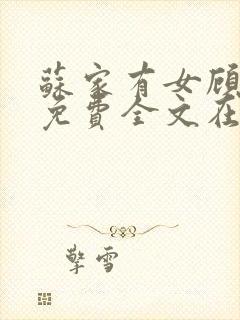 蘇家有女顾
免費全文在
擎雪